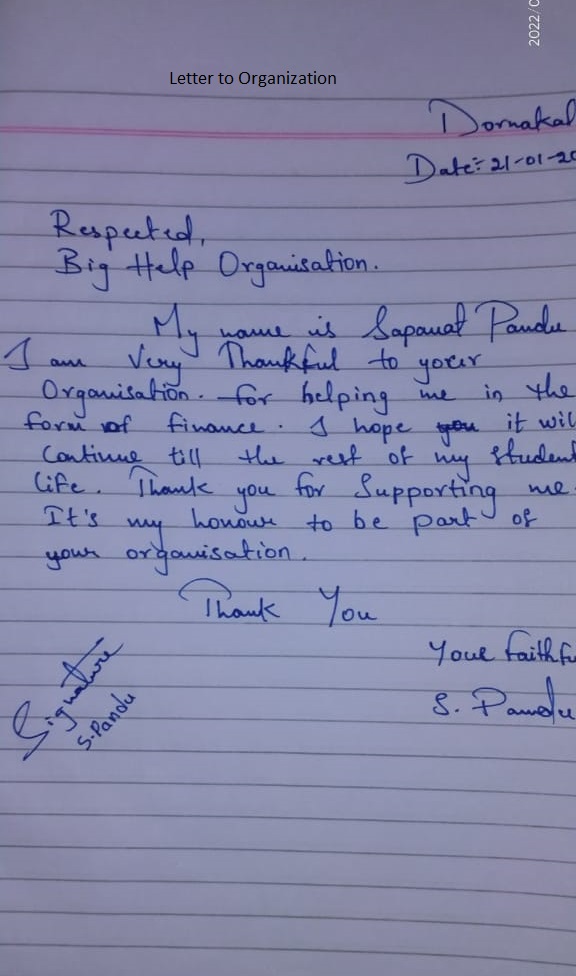 2022/0
Letter to Organization
Dornakal
Date:- 21-01-20
Respected,
Big Help Organisation.
My name is Sapavat Pandu
I am Very Thankful to your
Organisation. for helping me in the
form of finance. I hope you it will
Continue till the rest of my student
life. Thank you for Supporting me.
It's my honour to be part of
your organisation.
Thank You
Your faithfu
S. Pandu
Signature
S.Pandu